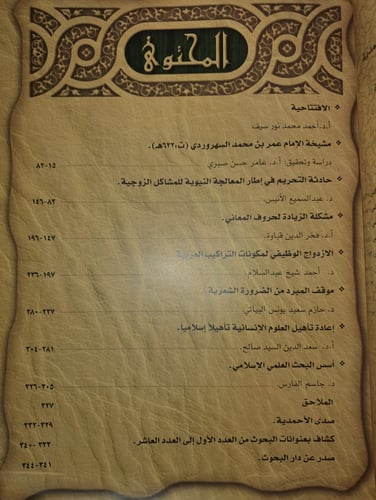 المحتوى
❖ الافتتاحية
أ.د. أحمد محمد نور سيف
❖ مشيخة الإمام عمر بن محمد السهروردي (ت٦٣٢هـ).
دراسة وتحقيق: أ.د. عامر حسن صبري ١٥-٨٢
❖ حادثة التحريم في إطار المعالجة النبوية للمشاكل الزوجية.
د. عبدالسميع الأنيس. ٨٣-١٤٦
❖ مشكلة الزيادة لحروف المعاني.
أ.د. فخر الدين قباوة. ١٤٧-١٩٦
❖ الازدواج الوظيفي لمكونات التراكيب العربية
د. أحمد شيخ عبدالسلام. ١٩٧-٢٣٦
❖ موقف المبرد من الضرورة الشعرية.
د. حازم سعيد يونس البياتي ٢٣٧-٢٨٠
❖ إعادة تأهيل العلوم الإنسانية تأهيلاً إسلامياً.
أ.د. سعد الدين السيد صالح. ٢٨١-٣٠٤
❖ أسس البحث العلمي الإسلامي.
د. جاسم الفارس. ٣٠٥-٣٣٦
الملاحق ٣٣٧
صدى الأحمدية. ٣٢٩-٣٣٢
كشاف بعنوانات البحوث من العدد الأول إلى العدد العاشر. ٣٣٣-٣٤٠
صدر عن دار البحوث. ٣٤١-٣٤٤